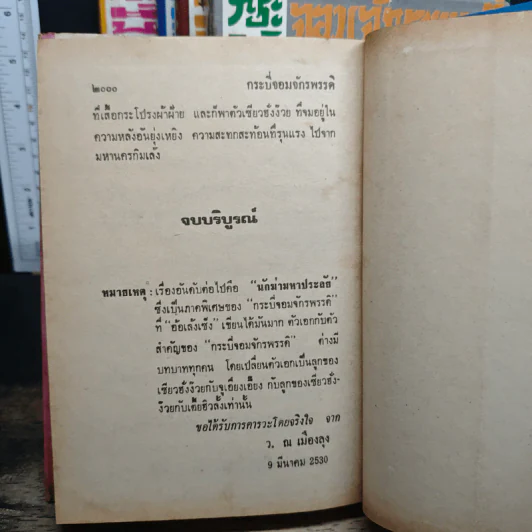 ๒๐๐๐ กระบี่จอมจักรพรรดิ
ที่เสื้อกระโปรงผ้าฝ้าย และก็พาตัวเซียวฮั่งง้วย ที่จมอยู่ใน
ความหลังอันยุ่งเหยิง ความสะทกสะท้อนที่รุนแรง ไปจาก
มหานครกิมเล้ง
จบบริบูรณ์
หมายเหตุ : เรื่องอันดับต่อไปคือ "นักฆ่ามหาประลัย"
ซึ่งเป็นภาคพิเศษของ "กระบี่จอมจักรพรรดิ"
ที่ "อ้อเล้งเซ็ง" เขียนได้มันมาก ตัวเอกกับตัว
สำคัญของ "กระบี่จอมจักรพรรดิ" ต่างมี
บทบาททุกคน โดยเปลี่ยนตัวเอกเป็นลูกของ
เซียวฮั่งง้วยกับจูเอี่ยงเอี็ยง กับลูกของเซียวฮั่ง-
ง้วยกับเตี้ยฮิวลั้งเท่านั้น
ขอได้รับการคารวะโดยจริงใจ จาก
ว. ณ เมืองลุง
9 มีนาคม 2530